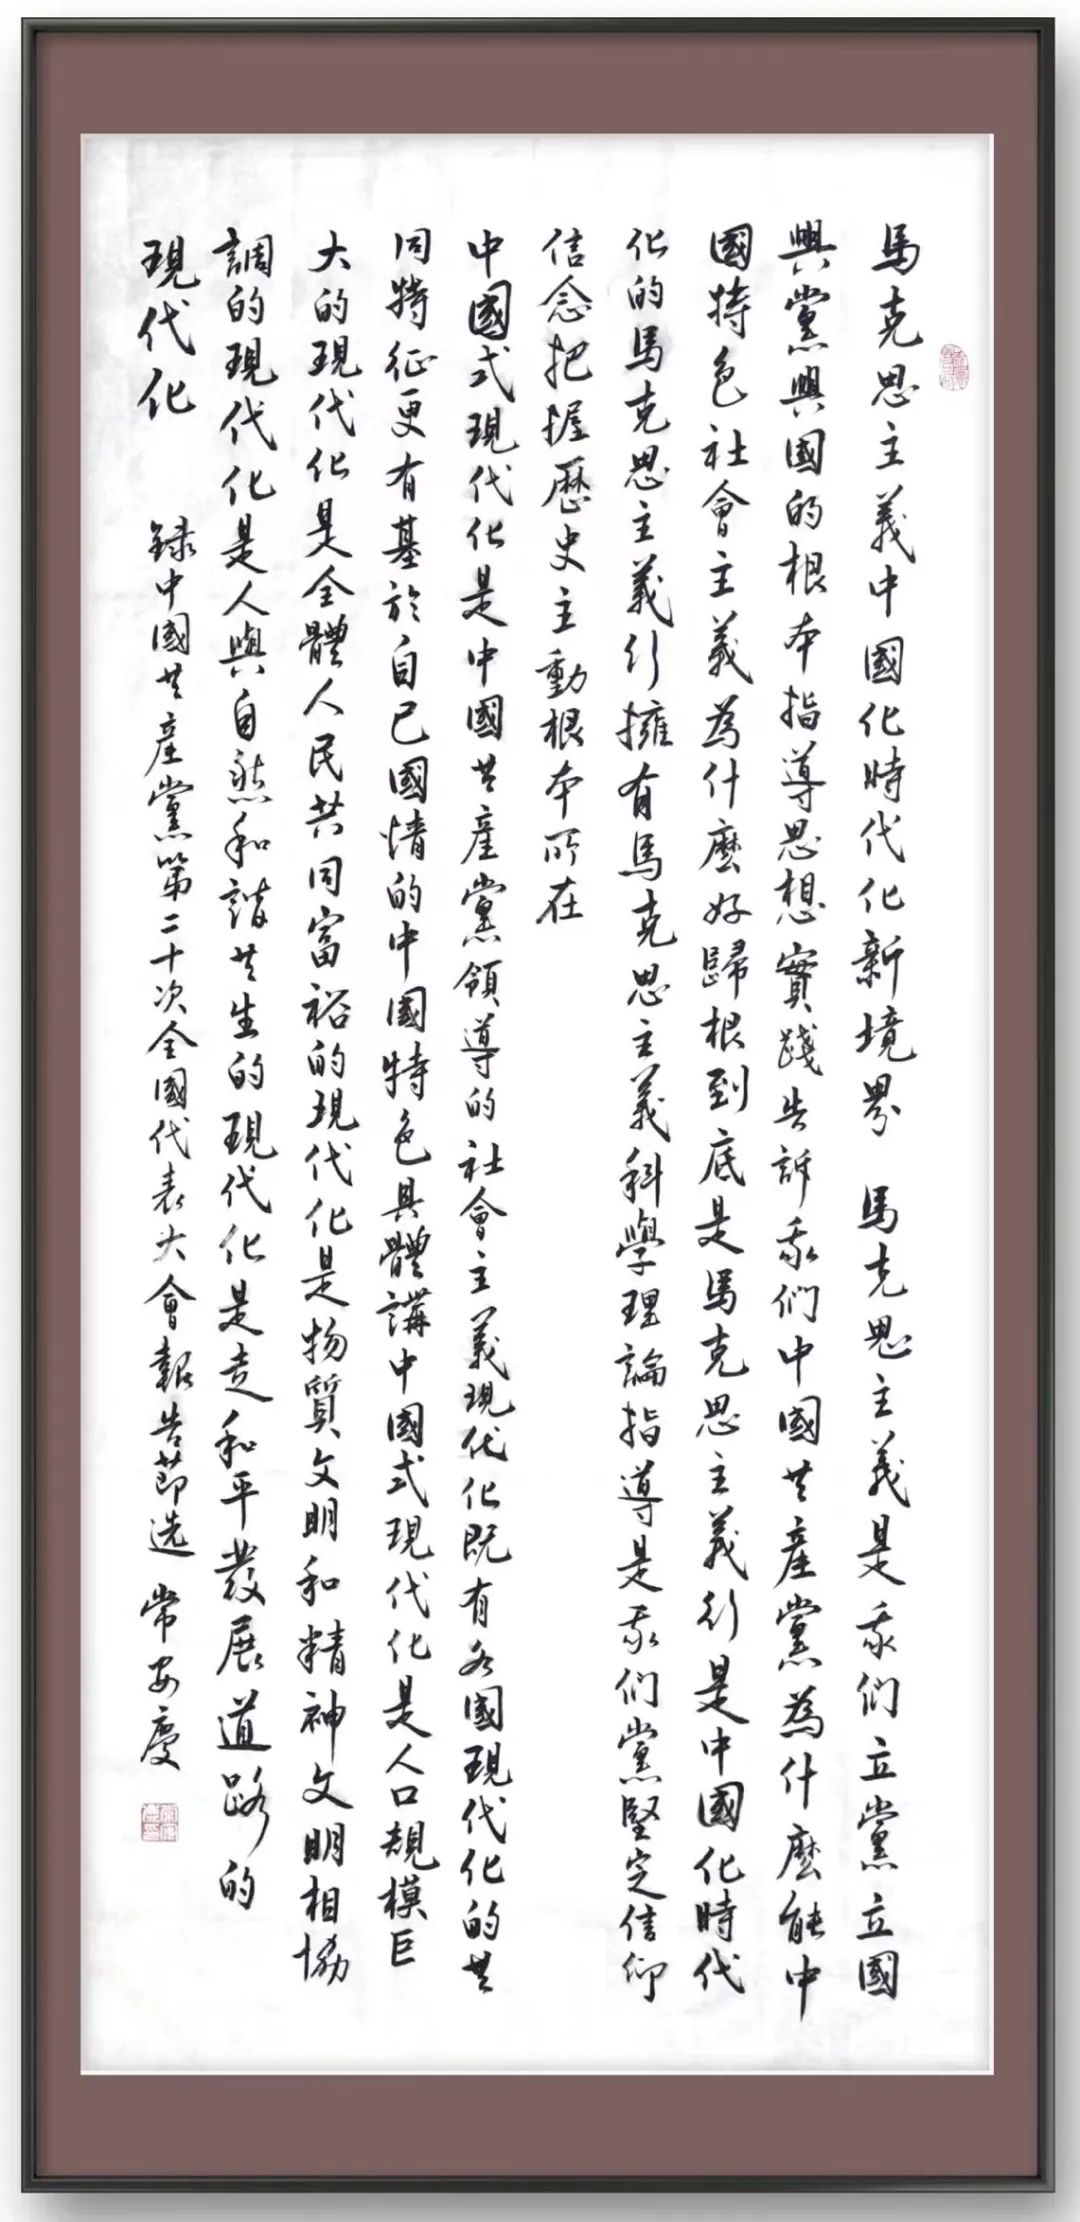 馬克思主義中國化時代化新境界 馬克思主義是我们立黨立國
興黨興國的根本指導思想實踐告訴我们中國共產黨為什麼能中
國特色社會主義為什麼好歸根到底是馬克思主義行是中國化時代
化的馬克思主義行擁有馬克思主義科學理論指導是我们黨堅定信仰
信念把握歷史主動根本所在
中國式現代化是中國共產黨領導的社會主義現代化既有各國現代化的共
同特征更有基於自己國情的中國特色具體講中國式現代化是人口規模巨
大的現代化是全體人民共同富裕的現代化是物質文明和精神文明相協
調的現代化是人與自然和諧共生的現代化是走和平發展道路的
現代化 録中國共產黨第二十次全國代表大會報告節选 常安慶